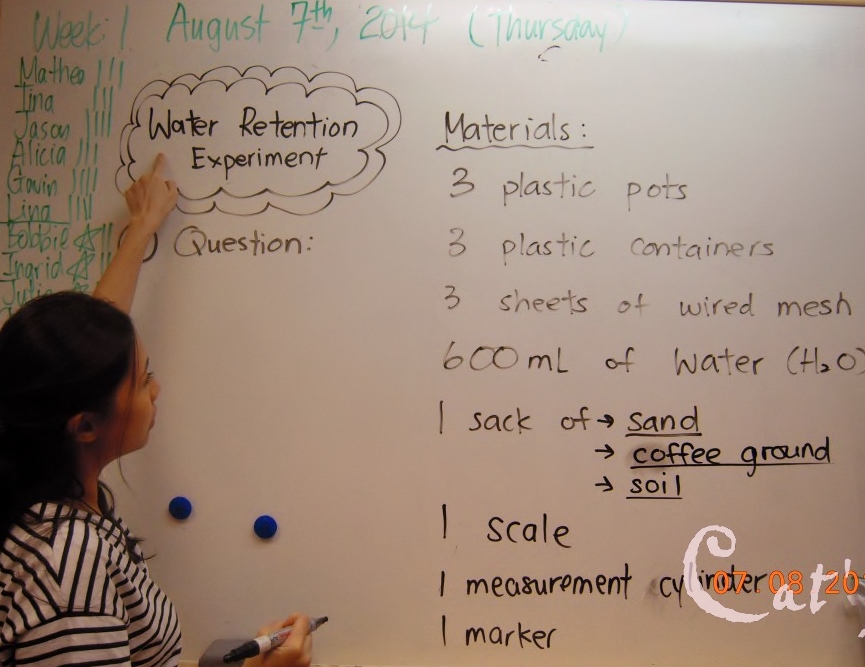 Week: 1 August 7th, 2014 (Thursday)
Mathea
Tina
Jason
Alicia
Gavin
Lina
Bobbie
Ingrid
Water Retention
Experiment
Question:
Materials:
3 plastic pots
3 plastic containers
3 sheets of wired mesh
600 mL of Water (H₂O)
1 sack of → sand
→ coffee ground
→ soil
1 scale
1 measurement cylinder
1 marker
07 08 20
Cat'